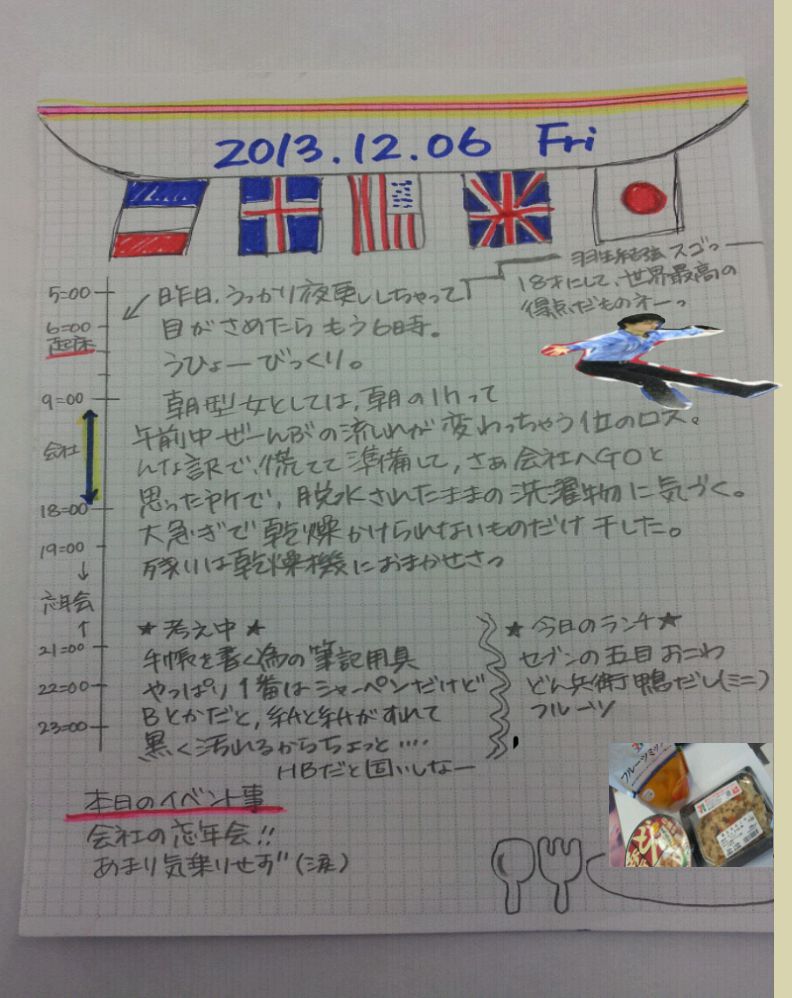 2013.12.06 Fri
羽生結弦 スゴッ
18才にして、世界最高の
得点だものネーっ
5=00
6=00
起床
9=00
会社
18=00
19=00
↓
忘年会
↑
21=00
22=00
23=00
昨日、うっかり夜更ししちゃって
目がさめたら もう6時。
うひょーびっくり。
朝型女としては、朝の1hって
午前中ぜーんぶの流れが変わっちゃう位のロス。
んな訳で、慌てて準備して、さぁ会社へGOと
思ったトコで、脱水されたままの洗濯物に気づく。
大急ぎで乾燥かけられないものだけ干した。
残りは乾燥機におまかせさっ
★考え中★
手帳を書く為の筆記用具
やっぱり1番はシャーペンだけど
Bとかだと、紙と紙がすれて
黒く汚れるからちょっと....
HBだと固いしなー
★今日のランチ★
セブンの五目おこわ
どん兵衛 鴨だし(ミニ)
フルーツ
本日のイベント事
会社の忘年会!!
あまり気乗りせず(涙)
フルーツミッ